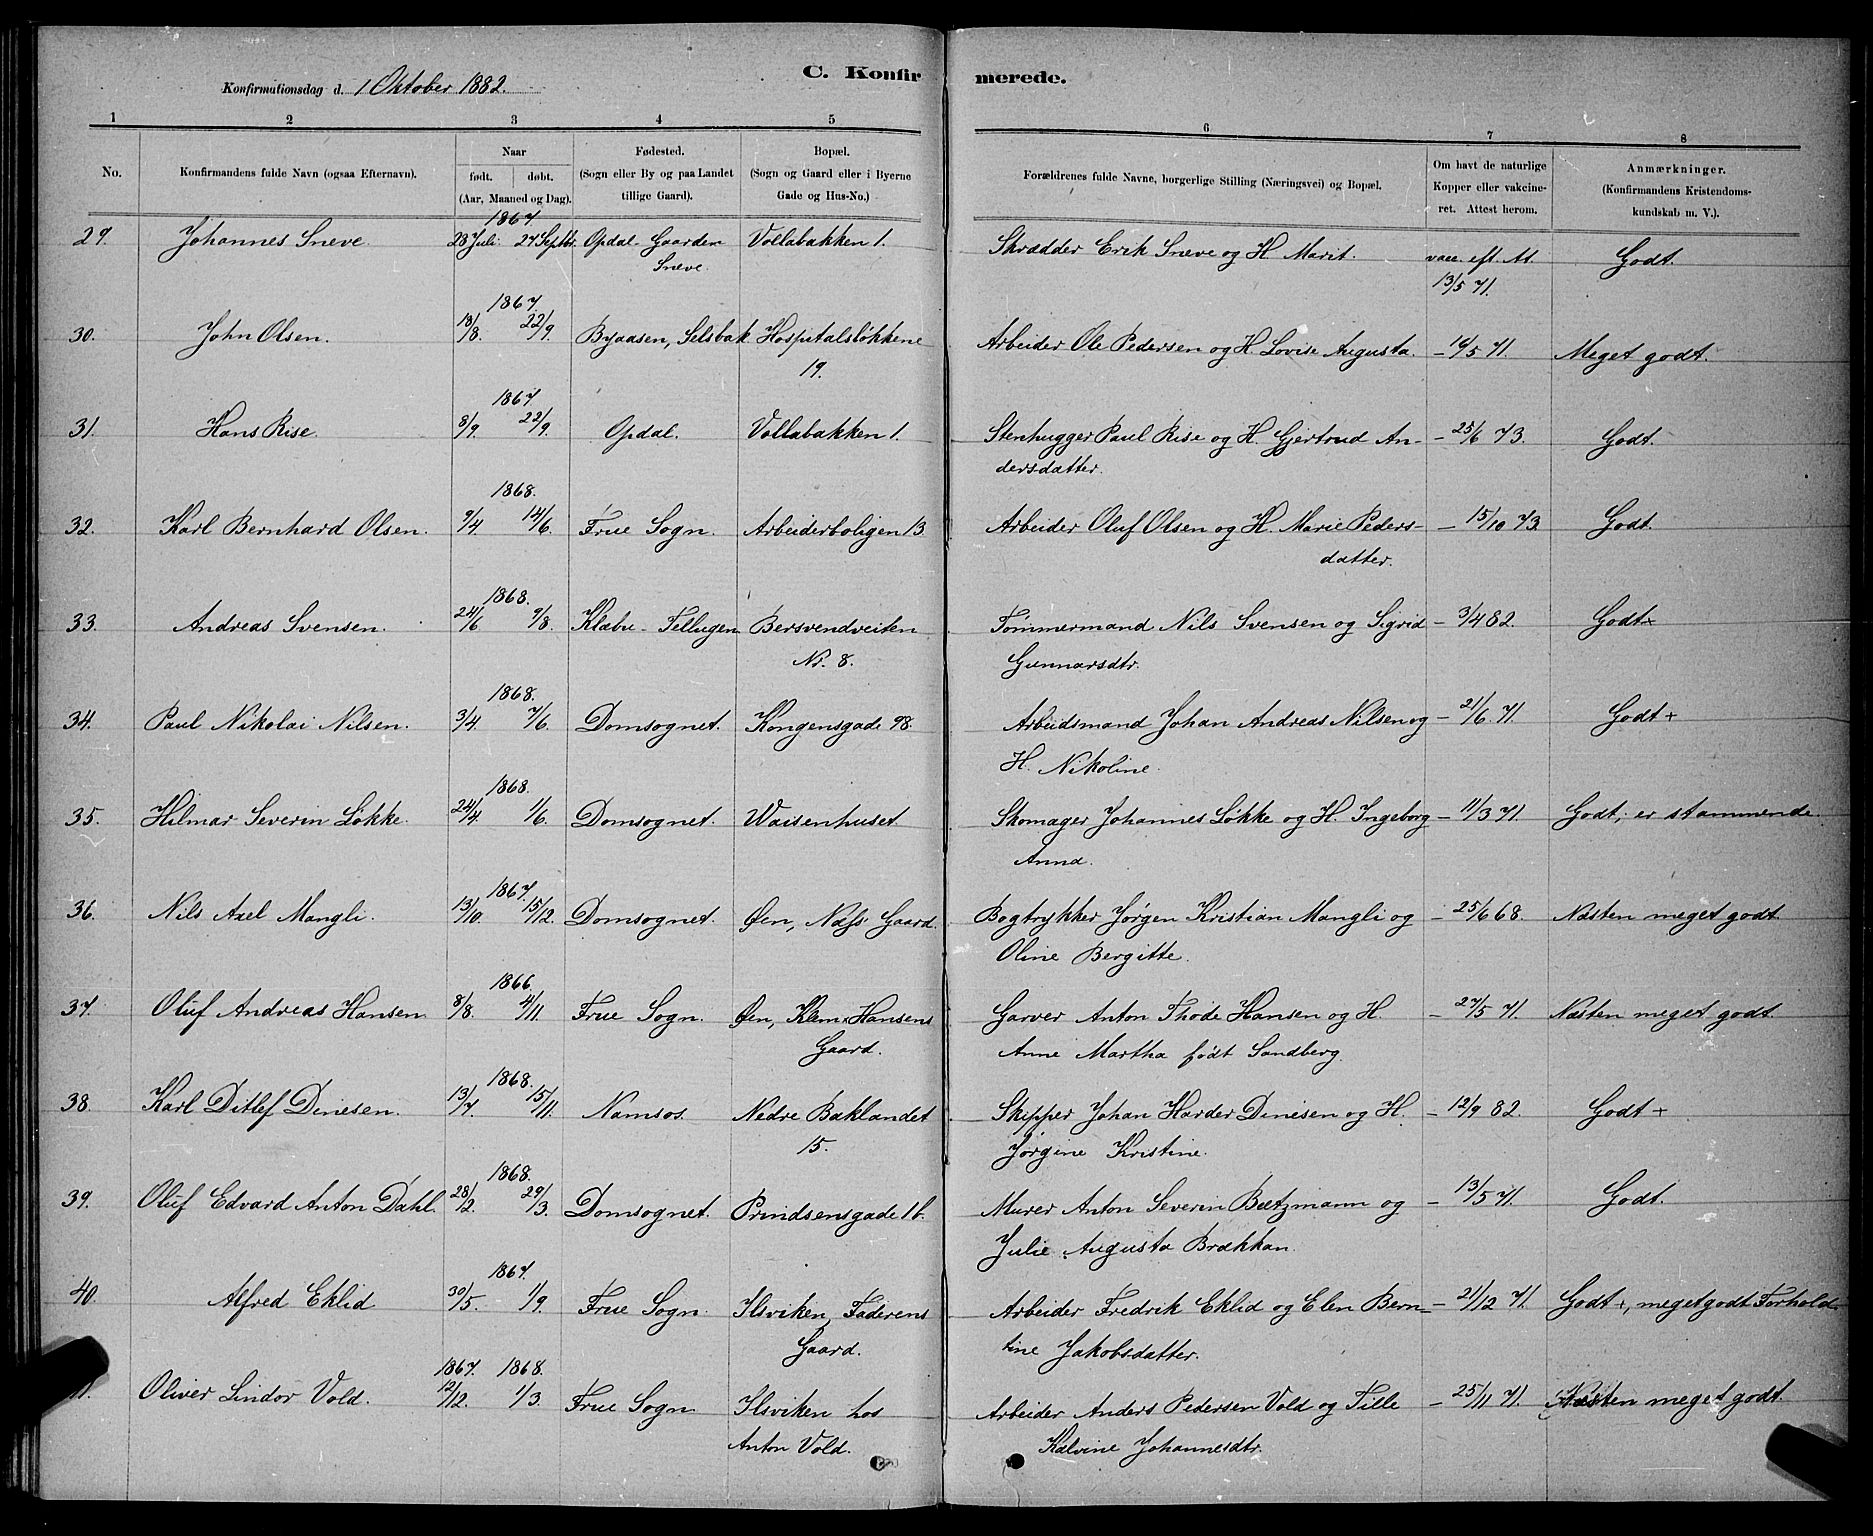 C. Konfirmerede.
Konfirmationsdag d. 1 Oktober 1882.
1 2 3 4 5 6 7 8
No. Konfirmandens fulde Navn (ogsaa Efternavn). Naar født. døbt. (Aar, Maaned og Dag). Fødested. (Sogn eller By og paa Landet tillige Gaard). Bopæl. (Sogn og Gaard eller i Byerne Gade og Hus-No.) Forældrenes fulde Navne, borgerlige Stilling (Næringsvei) og Bopæl. Om havt de naturlige Kopper eller vakcineret. Attest herom. Anmærkninger. (Konfirmandens Kristendomskundskab m. V.).
1867
29. Johannes Sneve. 28 Juli 27 Septbr. Opdal Gaarden Vollabakken 1. Skrædder Erik Sneve og H. Marit. vacc. eft. Att. Godt.
Sneve. 13/5 71.
1867
30. John Olsen. 13/8. 22/9. Byaasen, Selsbak Hospitalsløkkene Arbeider Ole Pedersen og H. Lovise Augusta. – 14/5 71. Meget godt.
19.
1867
31. Hans Rise. 8/9. 22/9. Opdal. Vollabakken 1. Stenhugger Paul Rise og H. Gjertrud An- – 25/6 73. Godt.
dersdatter.
1868.
32. Karl Bernhard Olsen. 9/4. 14/6. Frue Sogn. Arbeiderboligen 13. Arbeider Oluf Olsen og H. Marie Peders- – 15/10 73. Godt.
datter.
1868.
33. Andreas Svensen. 24/6 9/8. Klæbu - Tellugen Bersvendveiten Tømmermand Nils Svensen og Sigrid – 3/4 82. Godt+
Nr. 8. Gunnarsdtr.
1868.
34. Paul Nikolai Nilsen. 3/4. 7/6. Domsognet. Kongensgade 98. Arbeidsmand Johan Andreas Nilsen og – 21/6. 71. Godt +
H. Nikoline.
1868.
35. Hilmar Severin Løkke. 24/4. 1/6. Domsognet. Waisenhuset. Skomager Johannes Løkke og H. Ingeborg – 11/3 71. Godt; er stammende.
Anna.
1867.
36. Nils Axel Mangli. 13/10. 15/12. Domsognet. Øen, Næss Gaard. Bogtrykker Jørgen Kristian Mangli og – 25/6 68. Næsten meget godt.
Oline Bergitte.
1866.
37. Oluf Andreas Hansen 8/8. 4/11. Frue Sogn. Øen, Klem. Hansens Garver Anton Thode Hansen og H. – 27/5 71. Næsten meget godt.
Gaard. Anne Martha født Sandberg.
1868.
38. Karl Ditlef Dinesen. 13/7. 15/11. Namsos. Nedre Baklandet Skipper Johan Harder Dinesen og H. – 12/9 82. Godt +
15. Jørgine Kristine.
1868.
39. Oluf Edvard Anton Dahl. 28/2. 29/3. Domsognet. Prindsensgade 1 b. Murer Anton Severin Bætzmann og – 13/5 71. Godt.
Julie Augusta Brækkan.
1867.
40. Alfred Eklid 30/5. 1/9. Frue Sogn. Ilsviken, Faderens Arbeider Fredrik Eklid og Elen Bern- – 21/12 71. Godt +, meget godt Forhold
Gaard. tine Jakobsdatter.
1867. 1868.
41. Oliver Lindor Vold. 12/12. 1/3. Frue Sogn Ilsviken hos Arbeider Anders Pedersen Vold og Tille – 25/11 71. Næsten meget godt.
Anton Vold. Kalvine Johannesdtr.